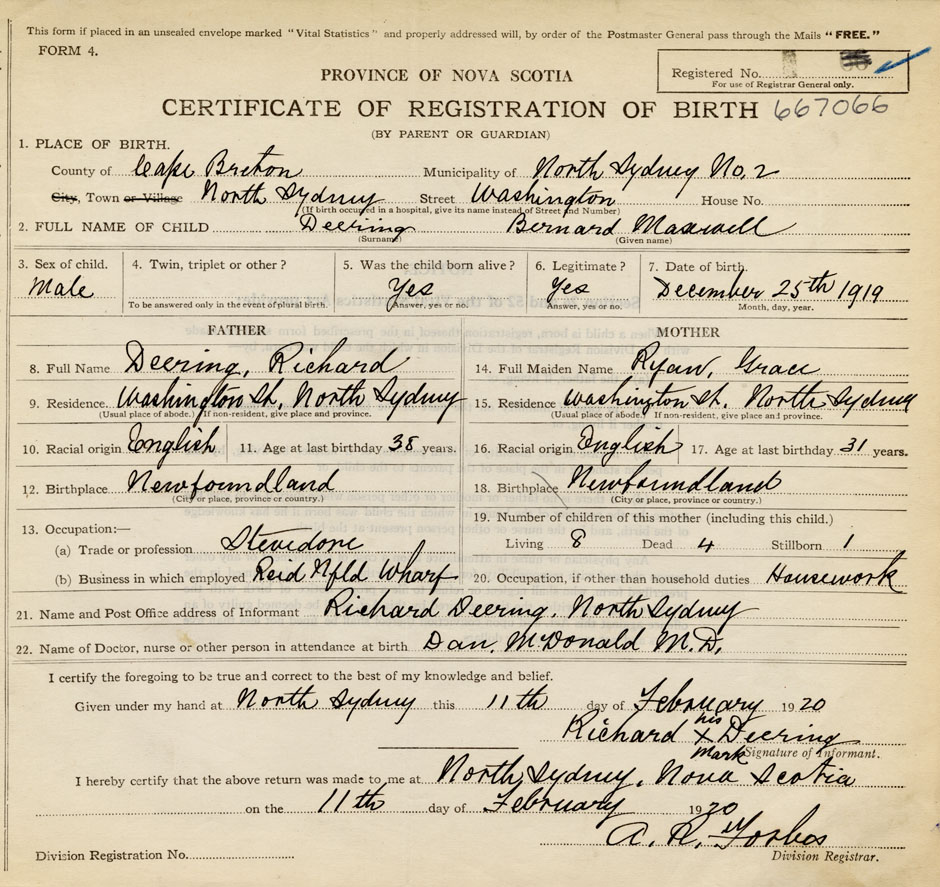 This form if placed in an unsealed envelope marked "Vital Statistics" and properly addressed will, by order of the Postmaster General pass through the Mails "FREE."
FORM 4.
Registered No.
For use of Registrar General only.
PROVINCE OF NOVA SCOTIA
CERTIFICATE OF REGISTRATION OF BIRTH 667066
(BY PARENT OR GUARDIAN)
1. PLACE OF BIRTH.
County of Cape Breton Municipality of North Sydney No. 2
City, Town or Village North Sydney Street Washington House No.
(If birth occured in a hospital, give its name instead of Street and Number)
2. FULL NAME OF CHILD Deering Bernard Maxwell
(Surname) (Given name)
3. Sex of child. 4. Twin, triplet or other? 5. Was the child born alive? 6. Legitimate? 7. Date of birth.
Male Yes Yes December 25th 1919
To be answered only in the event of plural birth. Answer, yes or no. Answer, yes or no. Month, day, year.
FATHER MOTHER
8. Full Name Deering, Richard 14. Full Maiden Name Ryan, Grace
9. Residence Washington St, North Sydney 15. Residence Washington St. North Sydney
(Usual place of abode.) If non-resident, give place and province. (Usual place of abode.) If non-resident, give place and province.
10. Racial origin English 11. Age at last birthday 38 years. 16. Racial origin English 17. Age at last birthday 31 years.
12. Birthplace Newfoundland 18. Birthplace Newfoundland
(City or place, province or country.) (City or place, province or country.)
13. Occupation:— 19. Number of children of this mother (including this child.)
(a) Trade or profession Stevedore Living 8 Dead 4 Stillborn 1
(b) Business in which employed Reid Nfld Wharf 20. Occupation, if other than household duties Housework
21. Name and Post Office address of Informant Richard Deering. North Sydney
22. Name of Doctor, nurse or other person in attendance at birth Dan. McDonald M.D.
I certify the foregoing to be true and correct to the best of my knowledge and belief.
Given under my hand at North Sydney this 11th day of February 1920
Richard his X Mark Deering
Signature of Informant.
I hereby certify that the above return was made to me at North Sydney, Nova Scotia
on the 11th day of February 1920
A. R. Forbes
Division Registration No. Division Registrar.